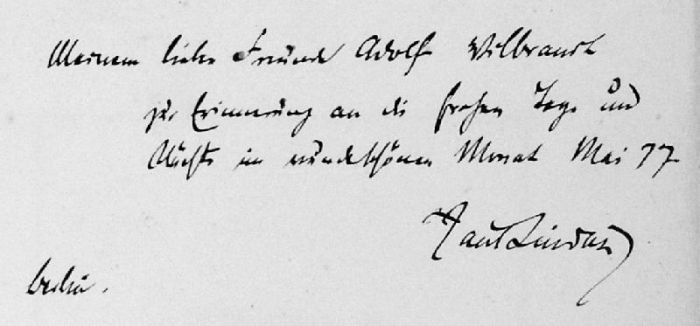 Meinem lieben Freunde Adolf Wilbrandt
zur Erinnerung an die frohen Tage und
Nächte im wunderschönen Monat Mai 77
Paul Lindau
Berlin.